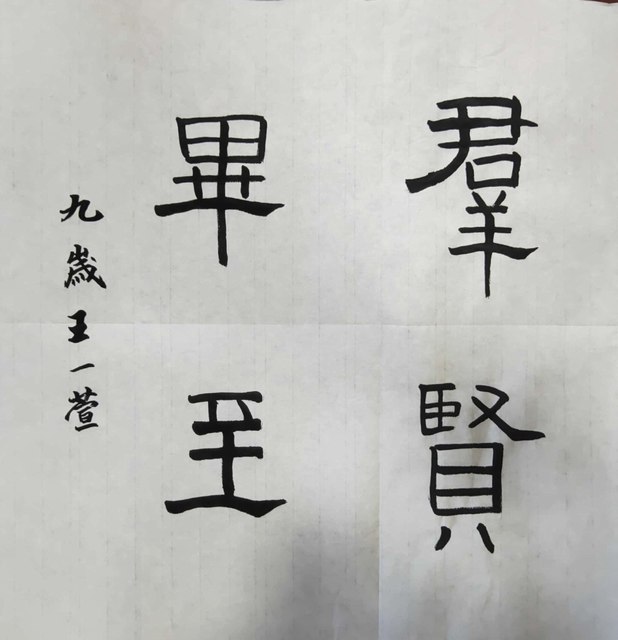 羣賢
畢至
九歲王一萱